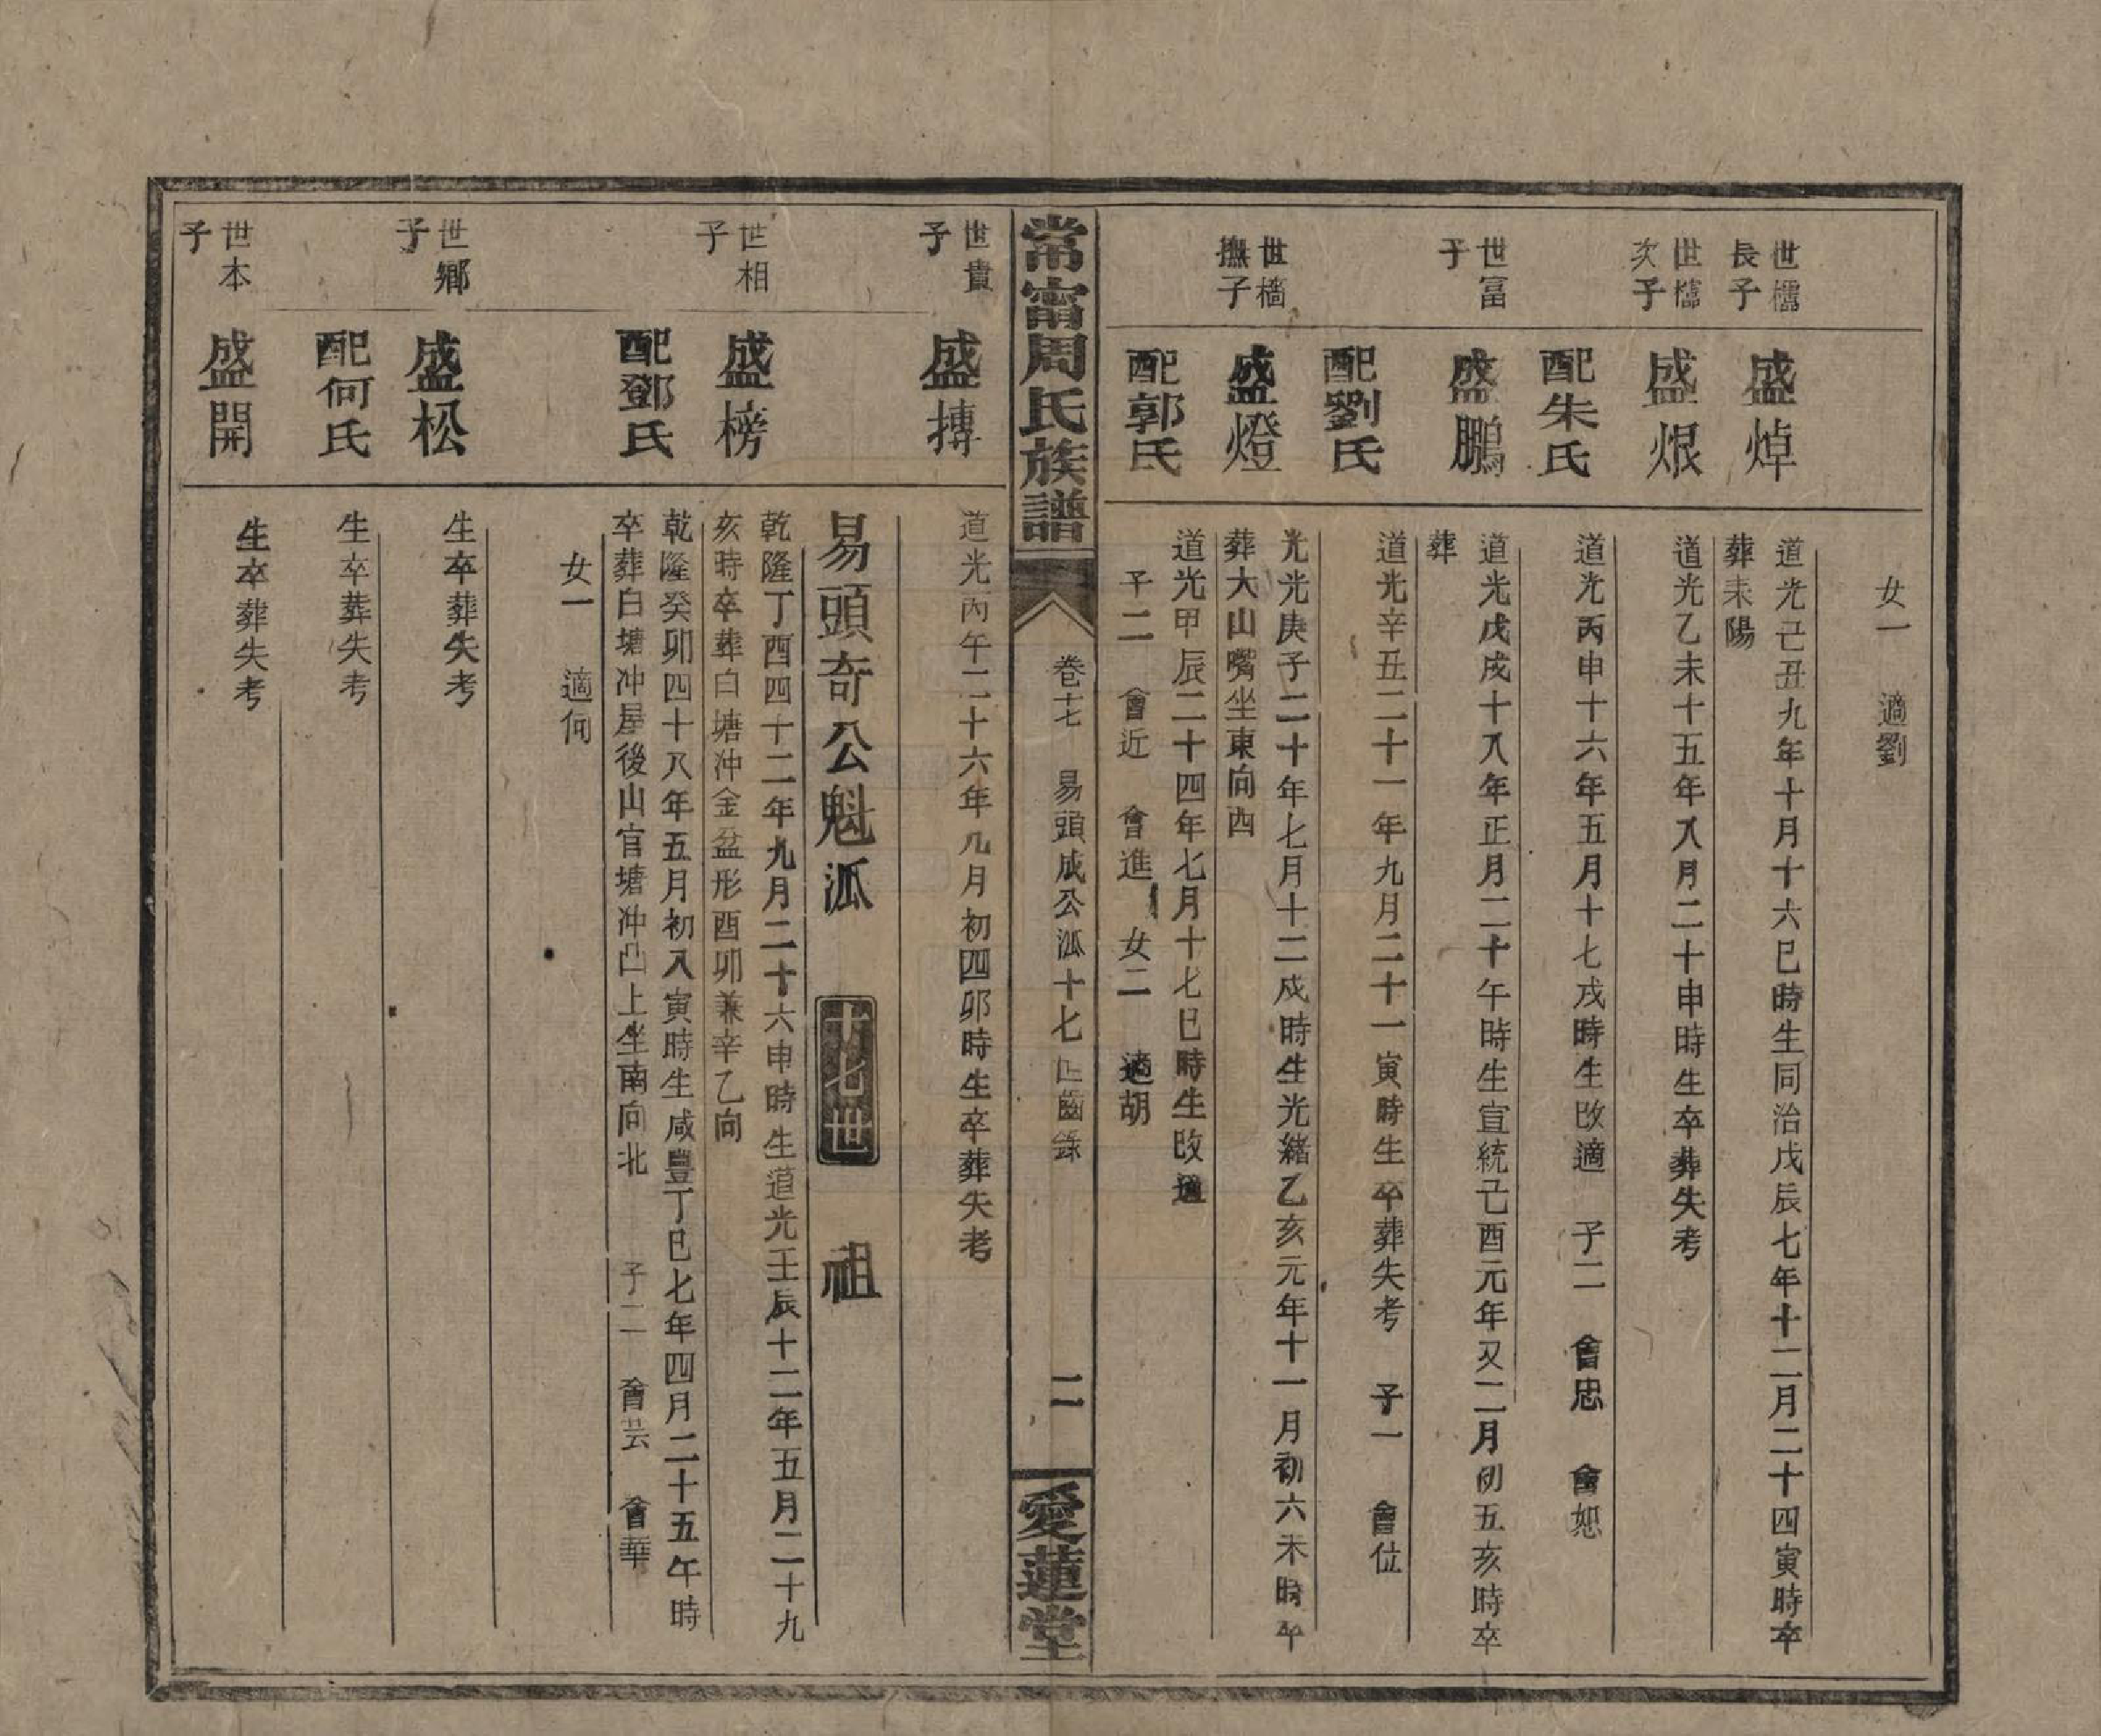 女一　適劉
世檽長子
盛焯
道光己丑九年十月十六巳時生同治戊辰七年十二月二十四寅時卒
葬耒陽
世檽次子
盛烺
道光乙未十五年八月二十申時生卒葬失考
配朱氏
道光丙申十六年五月十七戌時生改適　子二　會忠　會恕
世富子
盛鵬
道光戊戌十八年正月二十午時生宣統己酉元年又二月初五亥時卒
葬
配劉氏
道光辛丑二十一年九月二十一寅時生卒葬失考　子一　會位
世檣撫子
盛燈
光光庚子二十年七月十二戌時生光緒乙亥元年十一月初六未時卒
葬大山嘴坐東向西
配郭氏
道光甲辰二十四年七月十七巳時生改適
子二　會近　會進　女二　適胡
常甯周氏族譜
卷十七　易頭成公派十七世齒錄
二
愛蓮堂
世貴子
盛摶
道光丙午二十六年九月初四卯時生卒葬失考
易頭奇公魁派　十七世　祖
世相子
盛榜
乾隆丁酉四十二年九月二十六申時生道光壬辰十二年五月二十九
亥時卒葬白塘沖金盆形酉卯兼辛乙向
配鄧氏
乾隆癸卯四十八年五月初八寅時生咸豐丁巳七年四月二十五午時
卒葬白塘沖屋後山官塘沖凸上坐南向北　子二　會芸　會華
女一　適何
世鄉子
盛松
生卒葬失考
配何氏
生卒葬失考
世本子
盛開
生卒葬失考